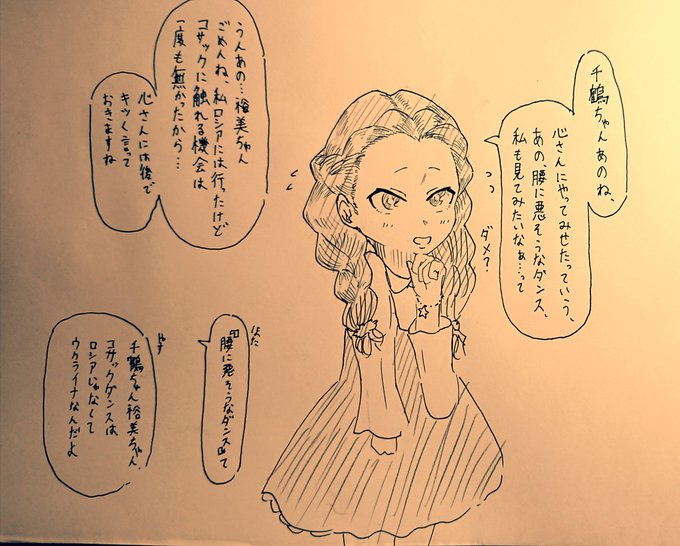 千鶴ちゃんあのね、
心さんにやってみせたっていう、
あの、腰に悪そうなダンス、
私も見てみたいなぁ…って
ダメ?
うんあの…裕美ちゃん
ごめんね、私ロシアには行ったけど
コサックに触れる機会は
一度も無かったから…
心さんには後で
キツく言って
おきますね
ほた
『腰に悪そうなダンス』て
やす
千鶴ちゃん裕美ちゃん、
コサックダンスは
ロシアじゃなくて
ウクライナなんだよ